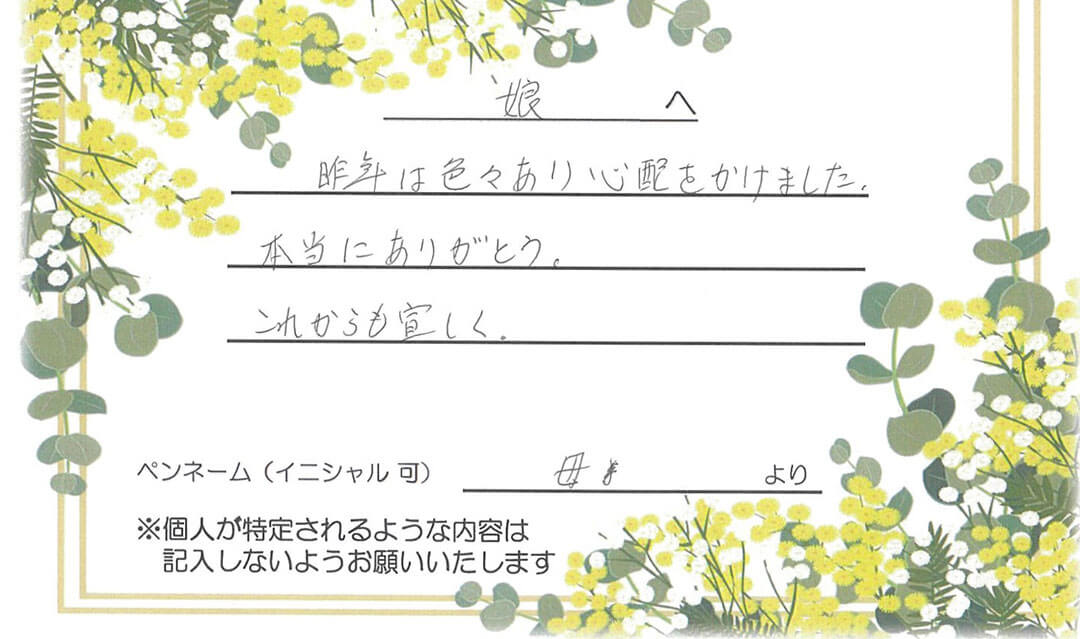 娘 へ
昨年は色々あり心配をかけました。
本当にありがとう。
これからも宜しく。
ペンネーム（イニシャル 可） 母 より
※個人が特定されるような内容は
記入しないようお願いいたします